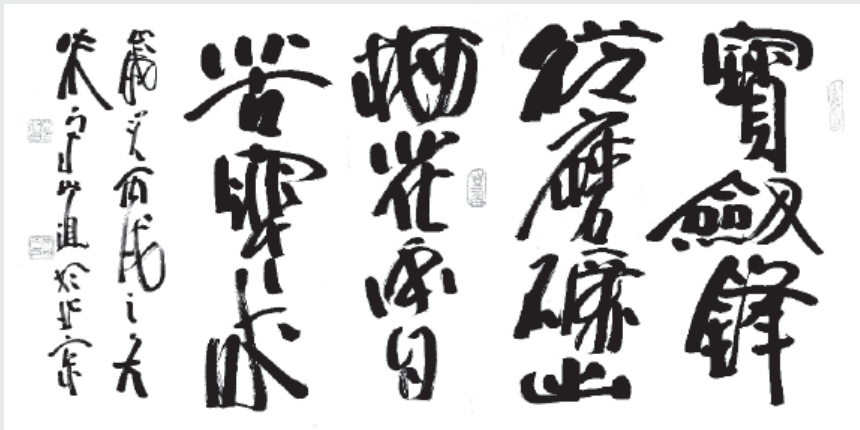 寶劒鋒
從磨礪出
梅花香自
苦寒來
歲次丙戌之夏
朱守道於北京